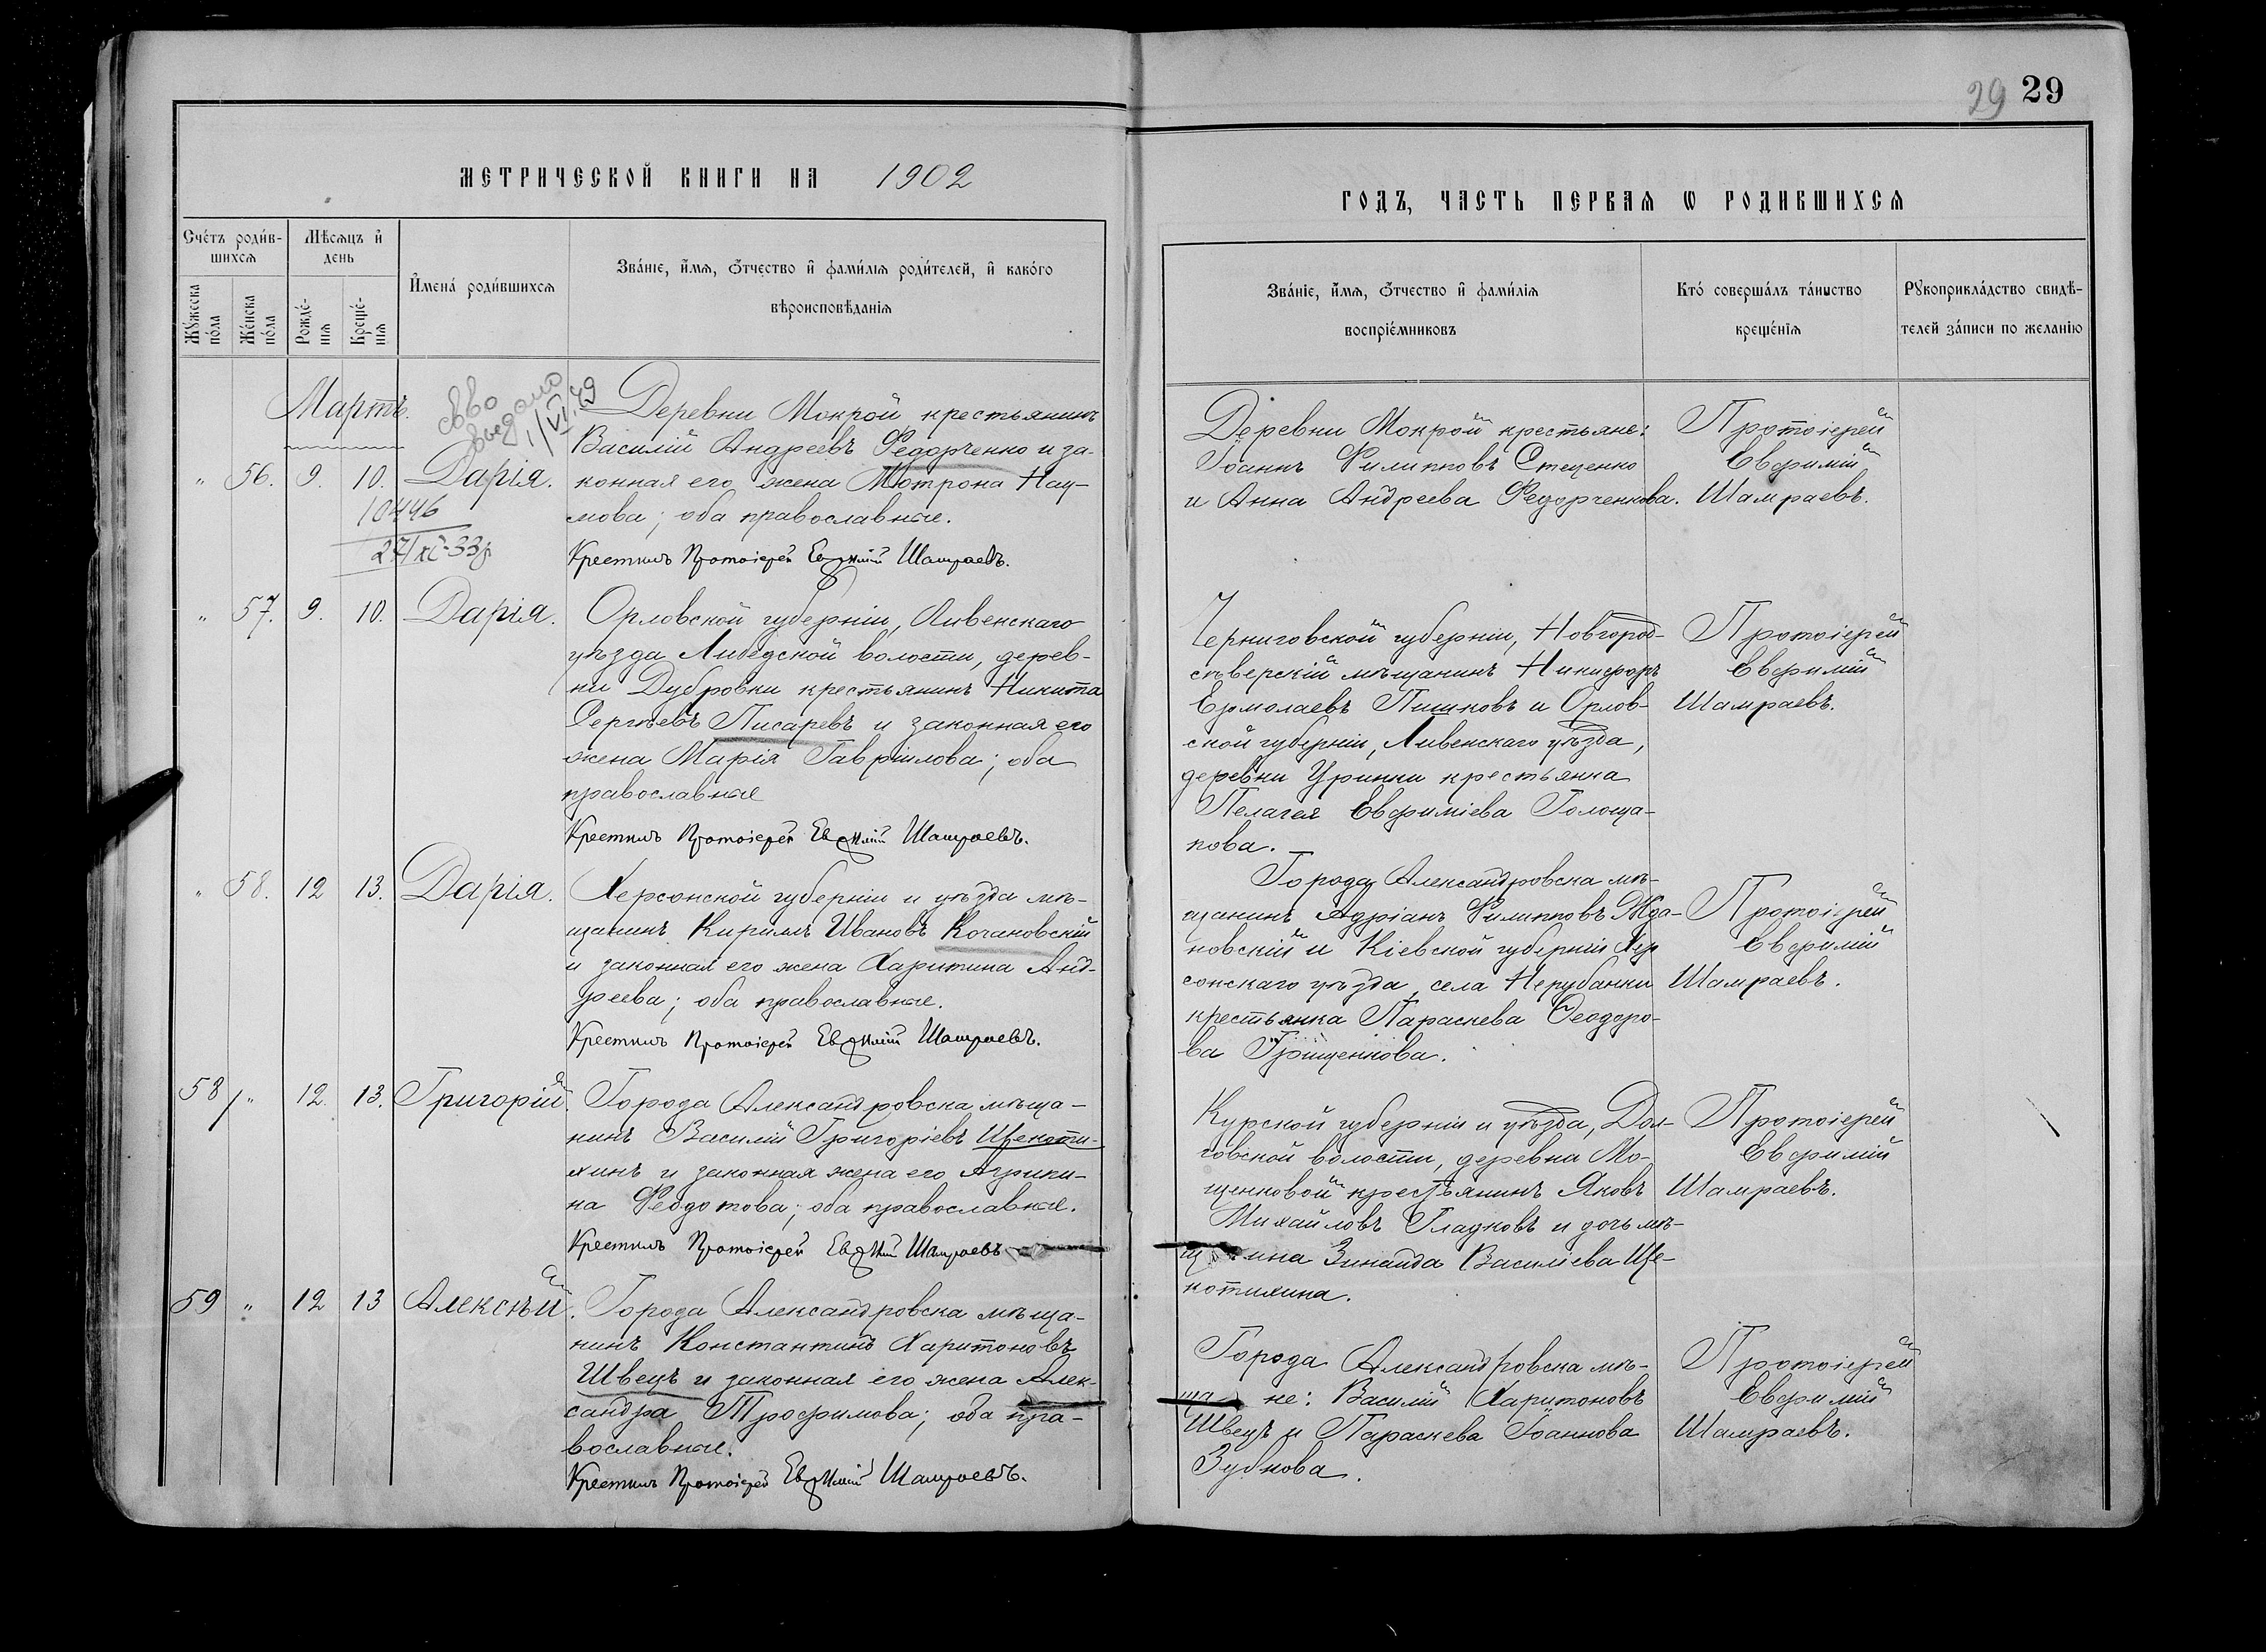 29 29
МЕТРИЧЕСКОЙ КНИГИ НА 1902
ГОДЪ, ЧАСТЬ ПЕРВАѦ Ѡ РОДИВШИХСѦ
Счéтъ роди́в-
шихсѧ
Мѣсѧцъ и҆
день
Мꙋ́жеска
по́ла
Же́нска
по́ла
Рожде́-
нїѧ
Креще́-
нїѧ
И҆мена̀ роди́вшихсѧ
Зва́нїе, и҆́мѧ, ѻ҆́тчество и҆ фами́лїѧ роди́телей, и҆ како́гѡ
вѣроисповѣ́данїѧ
Зва́нїе, и҆́мѧ, ѻ҆́тчество и҆ фами́лїѧ
воспрїе́мниковъ
Кто̀ соверша́лъ та́инство
креще́нїѧ
Рꙋкоприкла́дство свидѣ́-
телей за́писи по жела́нїю
Мартъ.
сб-во
выдано
1/VI 49
" 56. 9. 10. Дарія.
10446
27/XI-33р
Деревни Мокрой крестьянинъ
Василій Андреевъ Федорченко и за-
конная его жена Мотрона Нау-
мова; оба православные.
Крестилъ Протоіерей Евфимій Шамраевъ.
Деревни Мокрой крестьяне:
Іоаннъ Филипповъ Стеценко
и Анна Андреева Федорченкова.
Протоіерей
Евфимій
Шамраевъ.
" 57. 9. 10. Дарія.
Орловской губерніи, Ливенскаго
уѣзда Либедской волости, дерев-
ни Дубровки крестьянинъ Никита
Сергѣевъ Писаревъ и законная его
жена Марія Гавріилова; оба
православные
Крестилъ Протоіерей Евфимій Шамраевъ.
Черниговской губерніи, Новгород-
сѣверскій мѣщанинъ Никифоръ
Ермолаевъ Пишковъ и Орлов-
ской губерніи, Ливенскаго уѣзда,
деревни Уринки крестьянка
Пелагея Евфиміева Голоща-
пова.
Протоіерей
Евфимій
Шамраевъ.
" 58. 12 13. Дарія.
Херсонской губерніи и уѣзда мѣ-
щанинъ Кириллъ Ивановъ Кочановскій
и законная его жена Харитина Анд-
реева; оба православные.
Крестилъ Протоіерей Евфимій Шамраевъ.
Города Александровска мѣ-
щанинъ Адріанъ Филипповъ Жда-
новскій и Кіевской губерніи Хер
сонскаго уѣзда, села Нерубанки
крестьянка Параскева Ѳеодоро-
ва Грищенкова.
Протоіерей
Евфимій
Шамраевъ.
58 " 12. 13. Григорій.
Города Александровска мѣща-
нинъ Василій Григоріевъ Щекоти-
хинъ и законная жена его Агрипи-
на Феодотова; оба православные.
Крестилъ Протоіерей Евфимій Шамраевъ
Курской губерніи и уѣзда, Дол-
говской волости, деревни Мо-
щенковой крестьянинъ Яковъ
Михайловъ Гладковъ и дочь мѣ-
щанина Зинаида Василіева Ще-
котихина.
Протоіерей
Евфимій
Шамраевъ.
59 " 12 13 Алексѣй.
Города Александровска мѣща-
нинъ Константинъ Харитоновъ
Швецъ и законная его жена Алек-
сандра Трофимова; оба пра-
вославные.
Крестилъ Протоіерей Евфимій Шамраевъ.
Города Александровска мѣ-
щане: Василій Харитоновъ
Швецъ и Параскева Іоаннова
Зубкова.
Протоіерей
Евфимій
Шамраевъ.